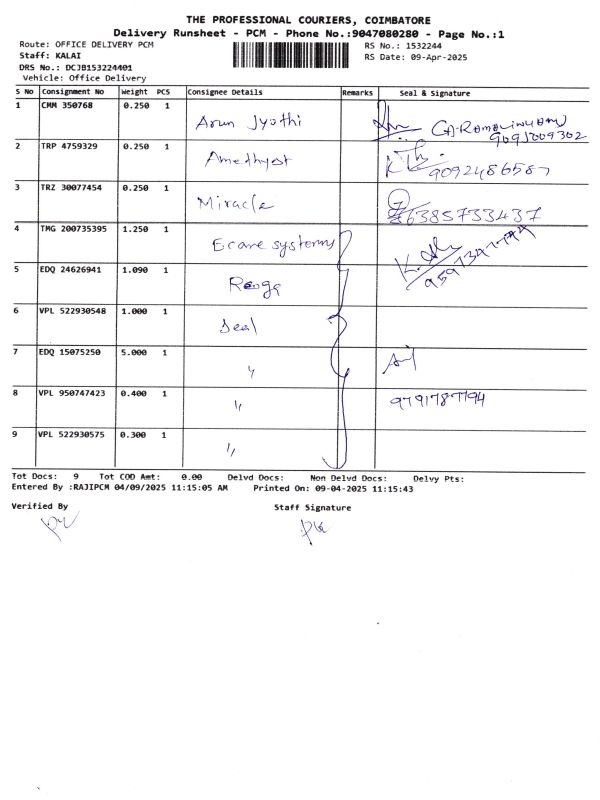 THE PROFESSIONAL COURIERS, COIMBATORE
Delivery Runsheet - PCM - Phone No.:9047080280 - Page No.:1
Route: OFFICE DELIVERY PCM RS No.: 1532244
Staff: KALAI RS Date: 09-Apr-2025
DRS No.: DCJB153224401
Vehicle: Office Delivery
S No Consignment No Weight PCS Consignee Details Remarks Seal & Signature
1 CMM 350768 0.250 1 Arun Jyothi
2 TRP 4759329 0.250 1 Amethyst 9092486587
3 TRZ 30077454 0.250 1 Miracle 6385733437
4 TMG 200735395 1.250 1 Ecare systems
5 EDQ 24626941 1.090 1 Renga
6 VPL 522930548 1.000 1 Seal
7 EDQ 15075250 5.000 1 "
8 VPL 950747423 0.400 1 " 9791787794
9 VPL 522930575 0.300 1 "
Tot Docs: 9 Tot COD Amt: 0.00 Delvd Docs: Non Delvd Docs: Delvy Pts:
Entered By :RAJIPCM 04/09/2025 11:15:05 AM Printed On: 09-04-2025 11:15:43
Verified By Staff Signature